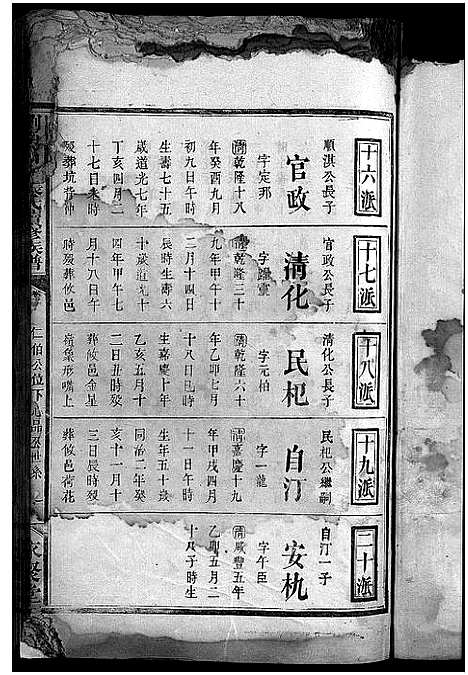 十六派
順淇公長子
官政
字定邦
清乾隆十八
年癸酉九月
初九日午時
生壽七十五
歲道光七年
丁亥四月二
十七日未時
歿葬坑背沖
十七派
官政公長子
清化
清乾隆三十
九年甲午十
二月十四日
辰時生壽六
十歲道光十
四年甲午七
月十八日午
時歿葬攸邑
十八派
清化公長子
民杞
字元柏
清乾隆六十
年乙卯七月
十八日巳時
生嘉慶十年
乙亥五月十
二日丑時歿
葬攸邑金星
嶺象形嘴上
十九派
民杞公繼嗣
自汀
字一龍
清嘉慶十九
年甲戌四月
十一日午時
生年五十歲
同治二年癸
亥十一月十
三日辰時歿
葬攸邑荷花
二十派
自汀一子
安杋
字午臣
清咸豐五年
乙卯五月二
十八子時生
仁伯公位下